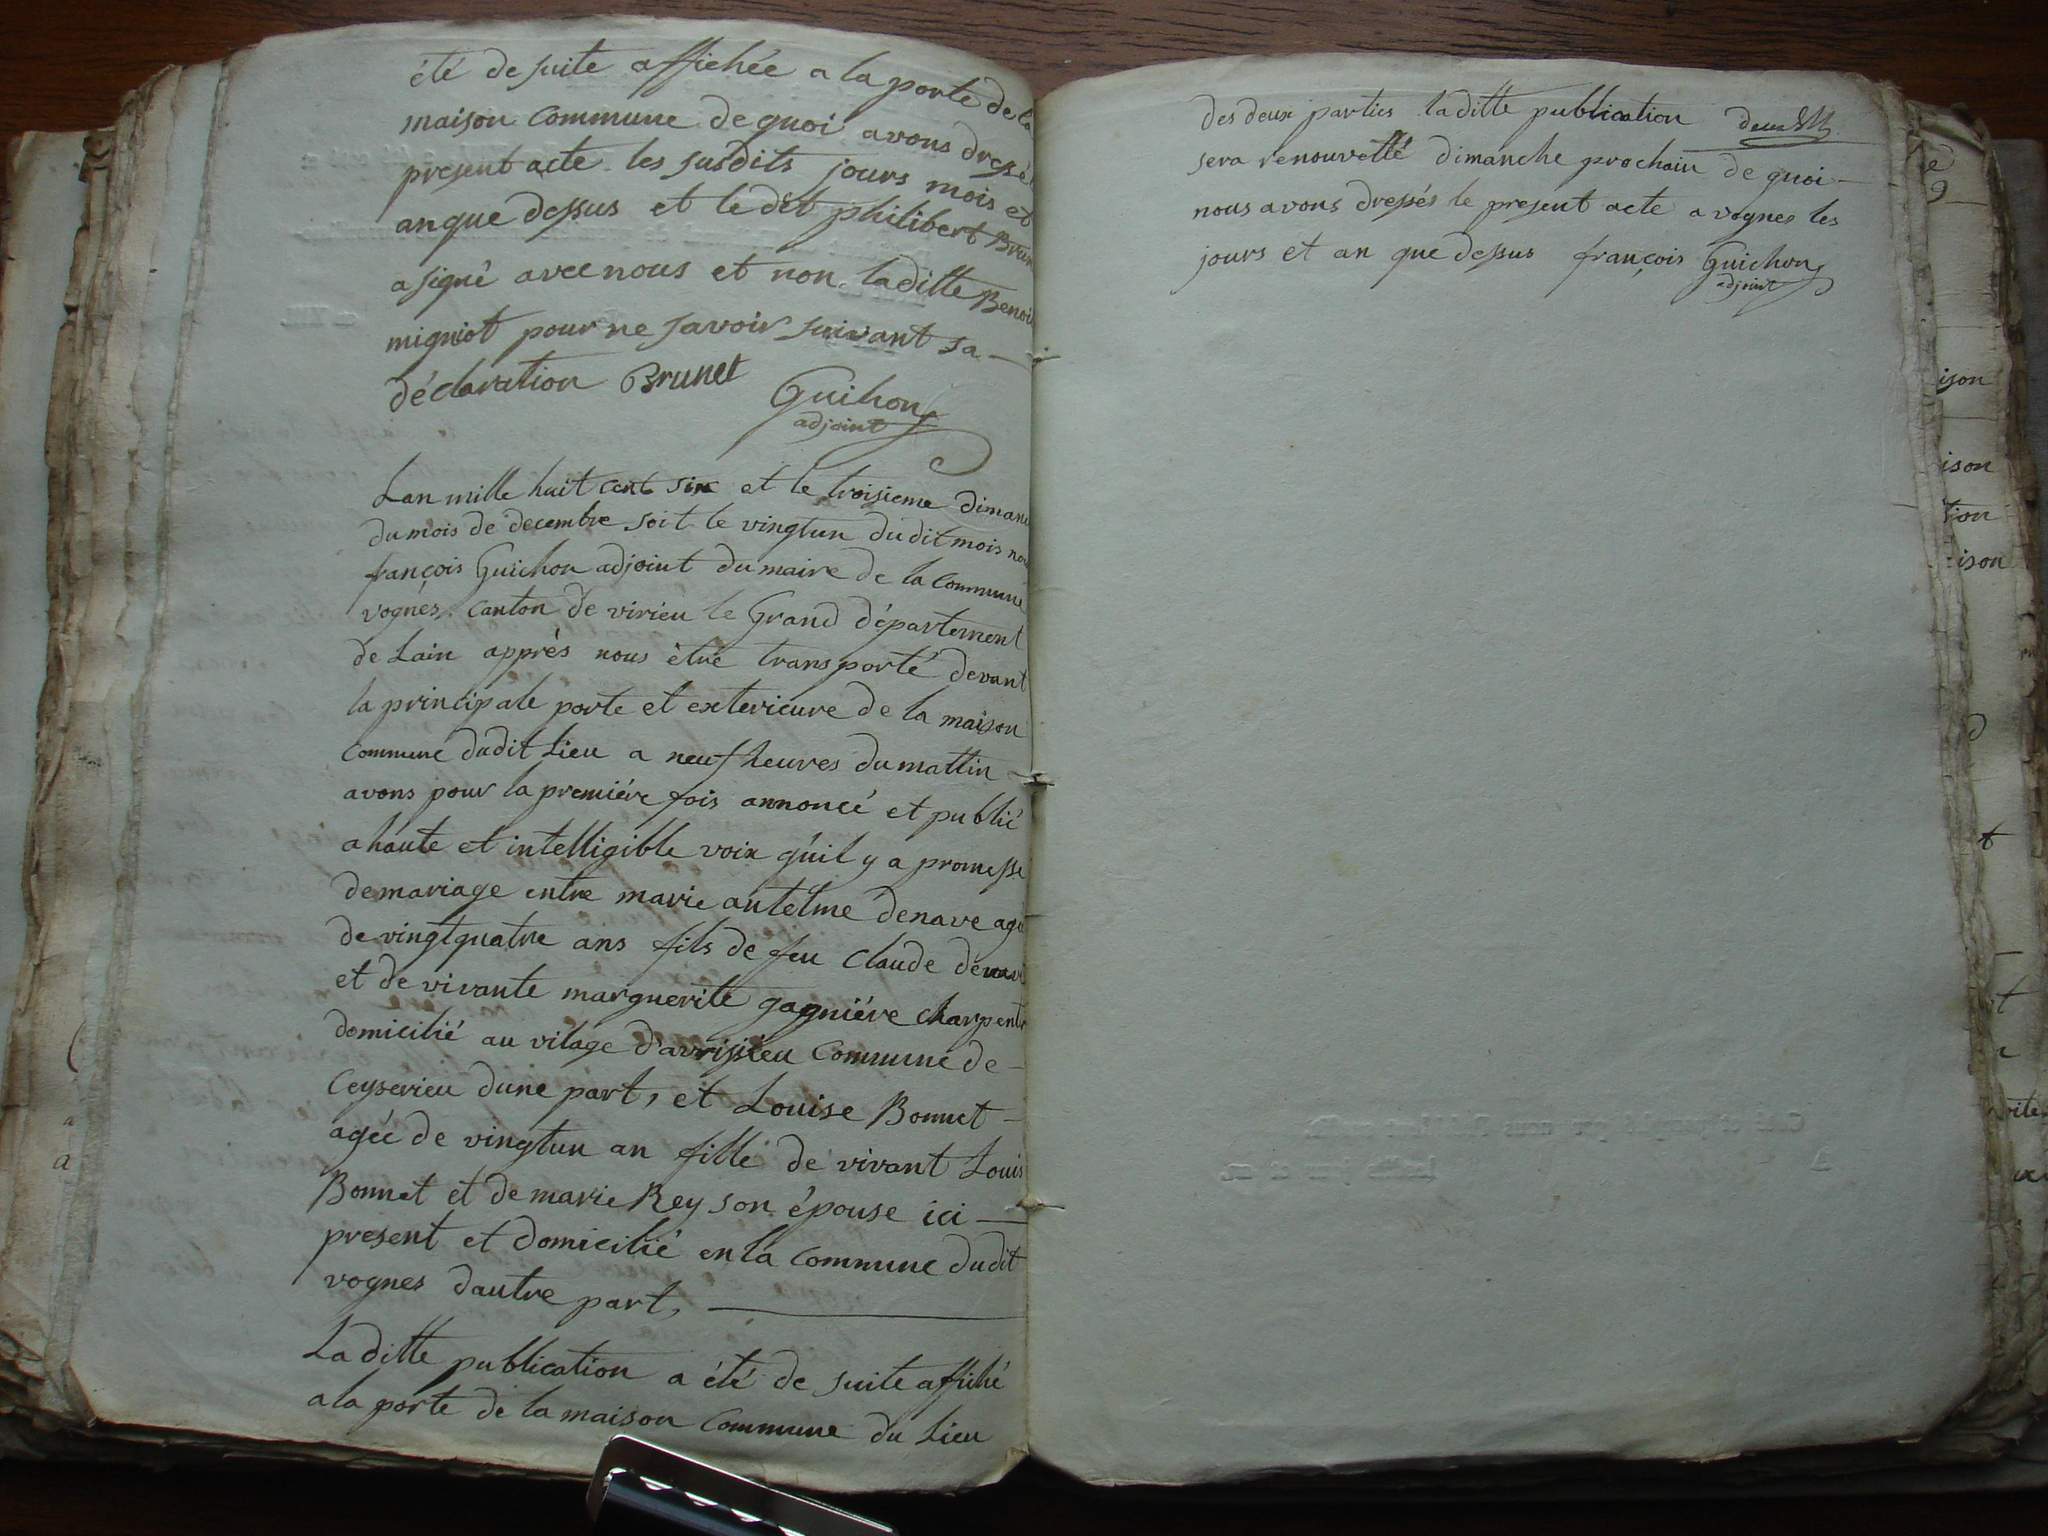 été de suite affichée a la porte de la
maison commune de quoi avons dressé
present acte les susdits jours mois et
an que dessus et le dit philibert Brun
a signé avec nous et non laditte Benoi
migniot pour ne savoir suivant sa
déclaration Brunet
Guihon
adjoint
Lan mille huit cent six et le troisieme diman
du mois de decembre soit le vingtun dudit mois nou
françois Guichon adjoint du maire de la commune
vognes canton de virieu le Grand département
de Lain apprès nous être transporté devant
la principale porte et exterieure de la maison
commune dudit Lieu a neuf heures du mattin
avons pour la premiére fois annoncé et publié
a haute et intelligible voix quil y a promesse
de mariage entre marie antelme denave agé
de vingtquatre ans fils de feu Claude denave
et de vivante marguerite gagniére charpent
domicilié au vilage d'avrissieu Commune de
Ceyserieu dune part, et Louise Bonnet
agée de vingtun an fille de vivant Louis
Bonnet et de marie Rey son épouse ici
present et domicilié en la commune dudit
vognes dautre part,
La ditte publication a été de suite affiché
a la porte de la maison commune du Lieu
des deux parties laditte publication
sera renouvellé dimanche prochain de quoi
nous avons dressés le present acte a vognes les
jours et an que dessus françois Guichon
adjoint
ison
ison
tion
ison